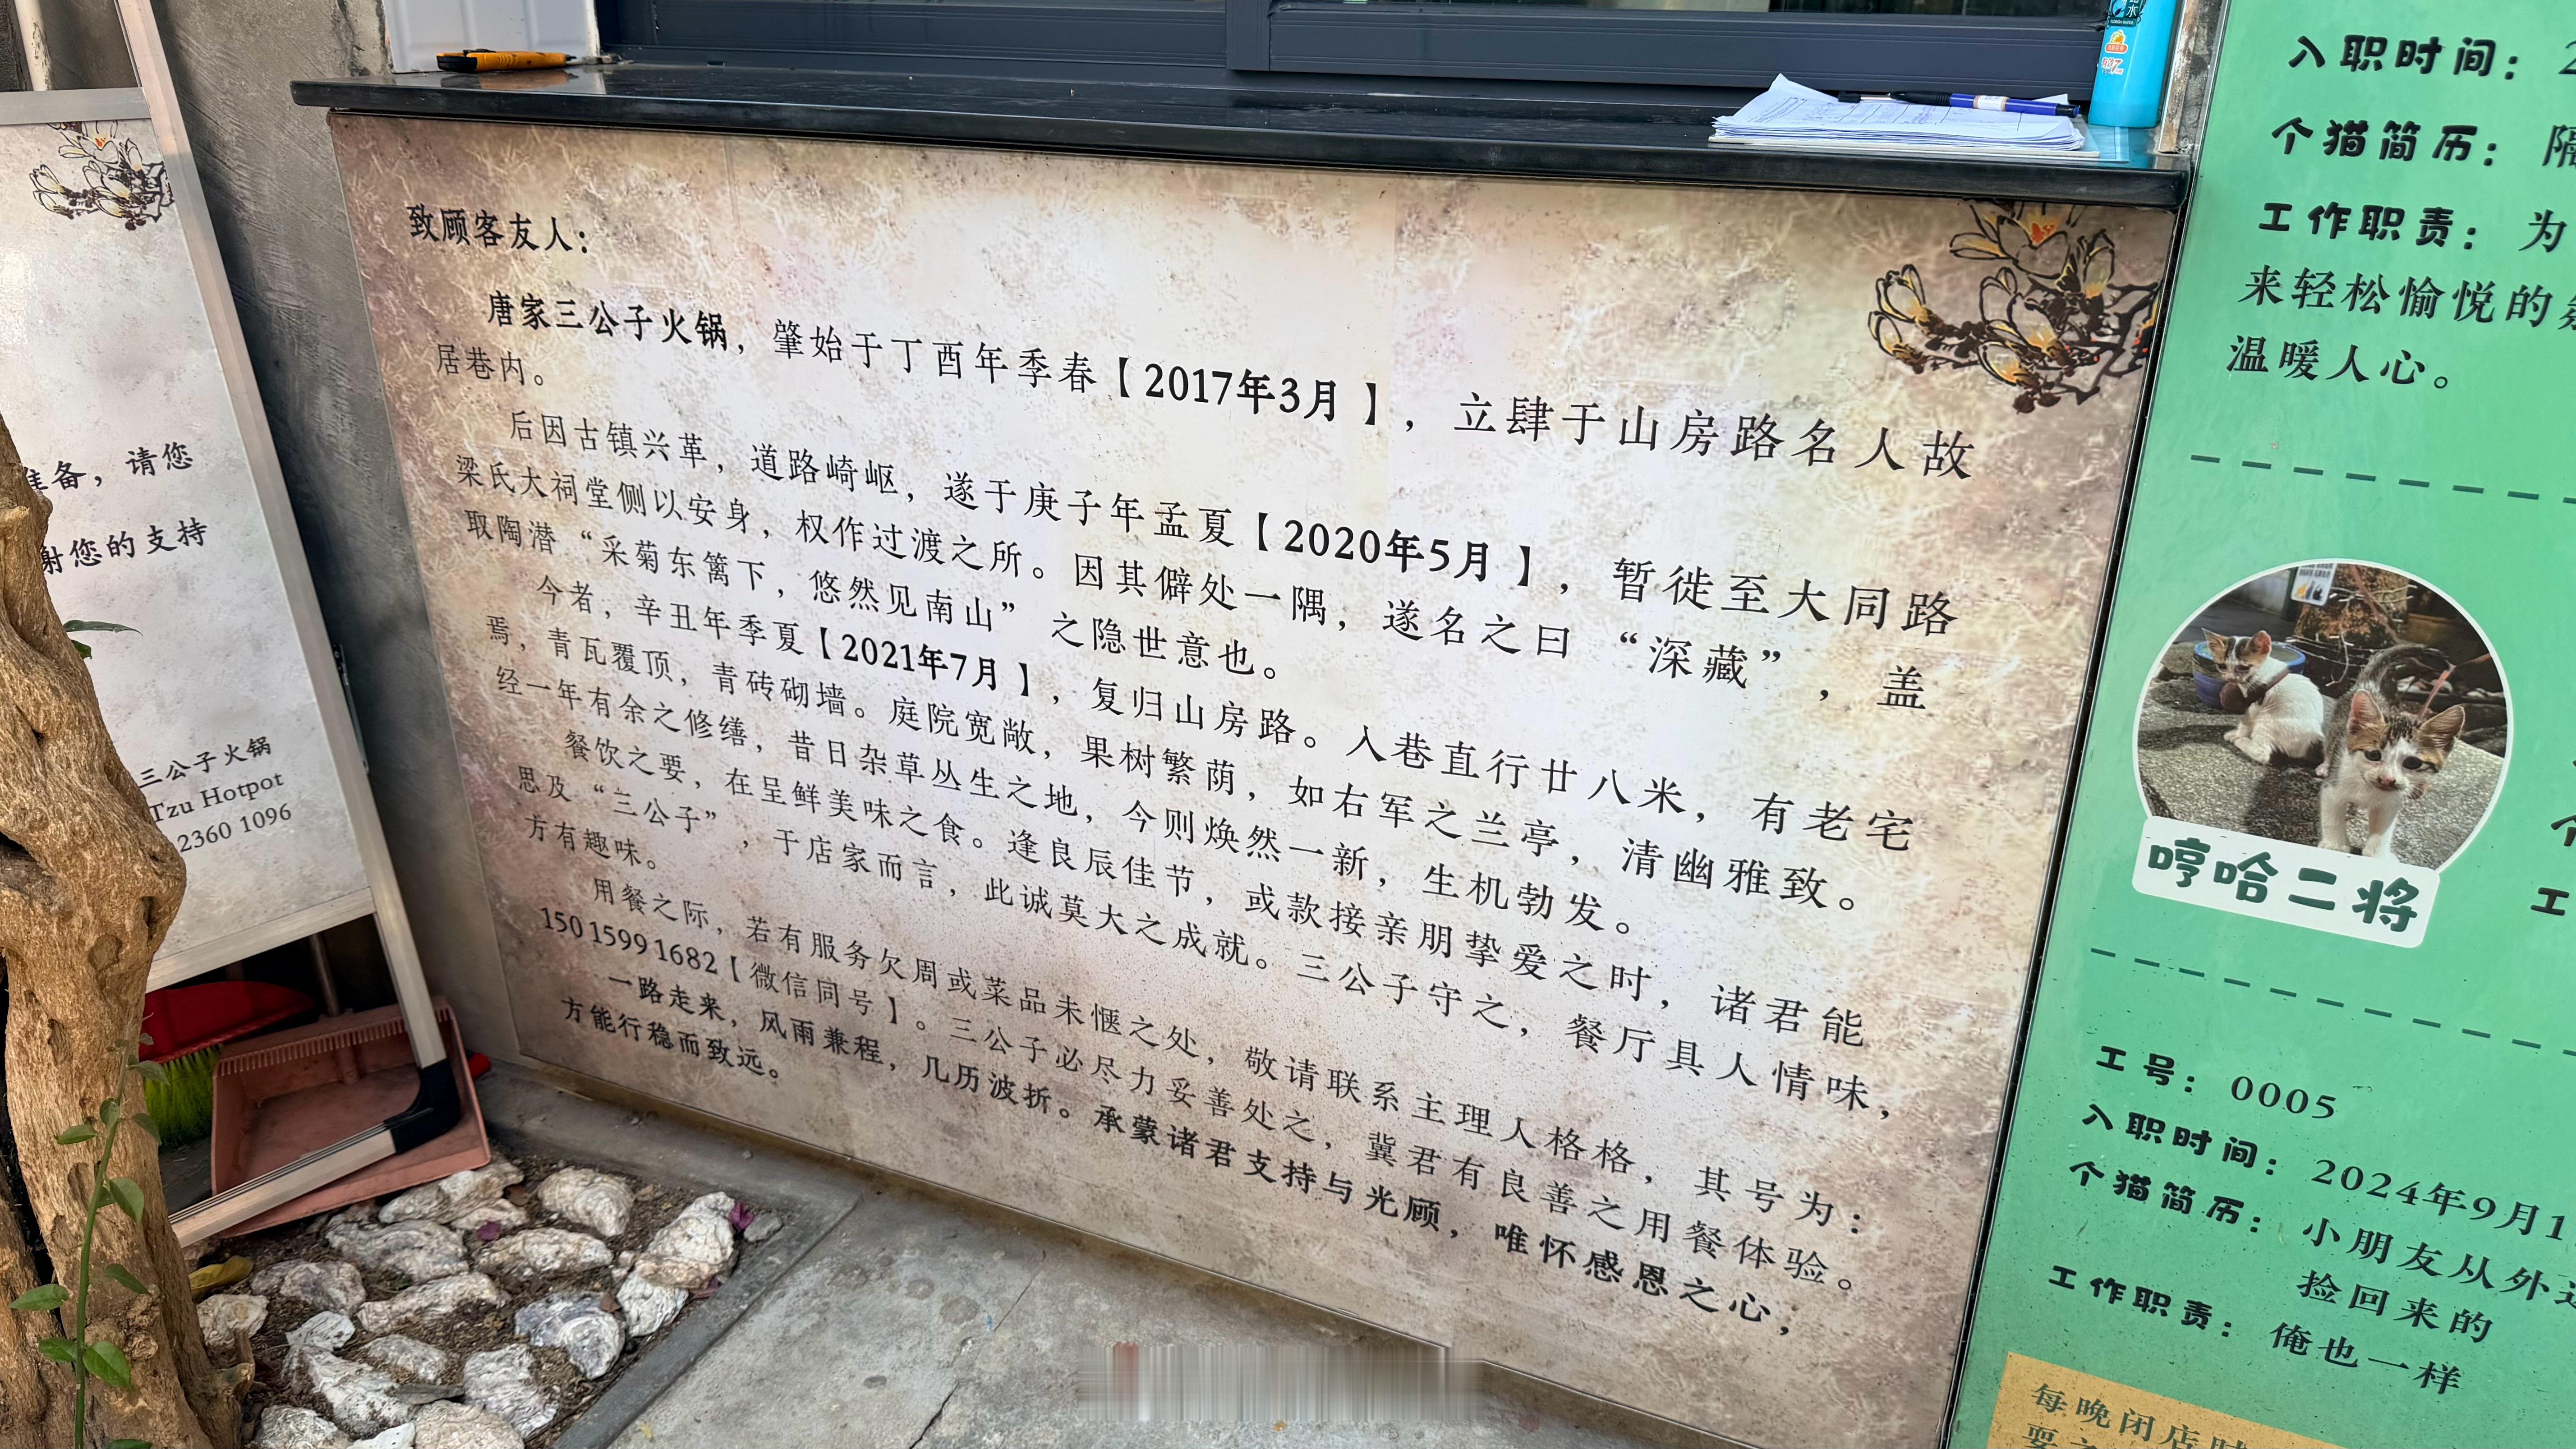 致顾客友人：
唐家三公子火锅，肇始于丁酉年季春【2017年3月】，立肆于山房路名人故
居巷内。
后因古镇兴革，道路崎岖，遂于庚子年孟夏【2020年5月】，暂徙至大同路
梁氏大祠堂侧以安身，权作过渡之所。因其僻处一隅，遂名之曰“深藏”，盖
取陶潜“采菊东篱下，悠然见南山”之隐世意也。
今者，辛丑年季夏【2021年7月】，复归山房路。入巷直行廿八米，有老宅
焉，青瓦覆顶，青砖砌墙。庭院宽敞，果树繁荫，如右军之兰亭，清幽雅致。
经一年有余之修缮，昔日杂草丛生之地，今则焕然一新，生机勃发。
餐饮之要，在呈鲜美味之食。逢良辰佳节，或款接亲朋挚爱之时，诸君能
思及“三公子”，于店家而言，此诚莫大之成就。三公子守之，餐厅具人情味，
方有趣味。
用餐之际，若有服务欠周或菜品未惬之处，敬请联系主理人格格，其号为：
150 1599 1682【微信同号】。三公子必尽力妥善处之，冀君有良善之用餐体验。
一路走来，风雨兼程，几历波折。承蒙诸君支持与光顾，唯怀感恩之心，
方能行稳而致远。
备，请您
谢您的支持
三公子火锅
Tzu Hotpot
2360 1096
入职时间：2
个猫简历：隔
工作职责：为
来轻松愉悦的
温暖人心。
哼哈二将
工号：0005
入职时间：2024年9月1
个猫简历：小朋友从外
捡回来的
工作职责：俺也一样
每晚闭店时